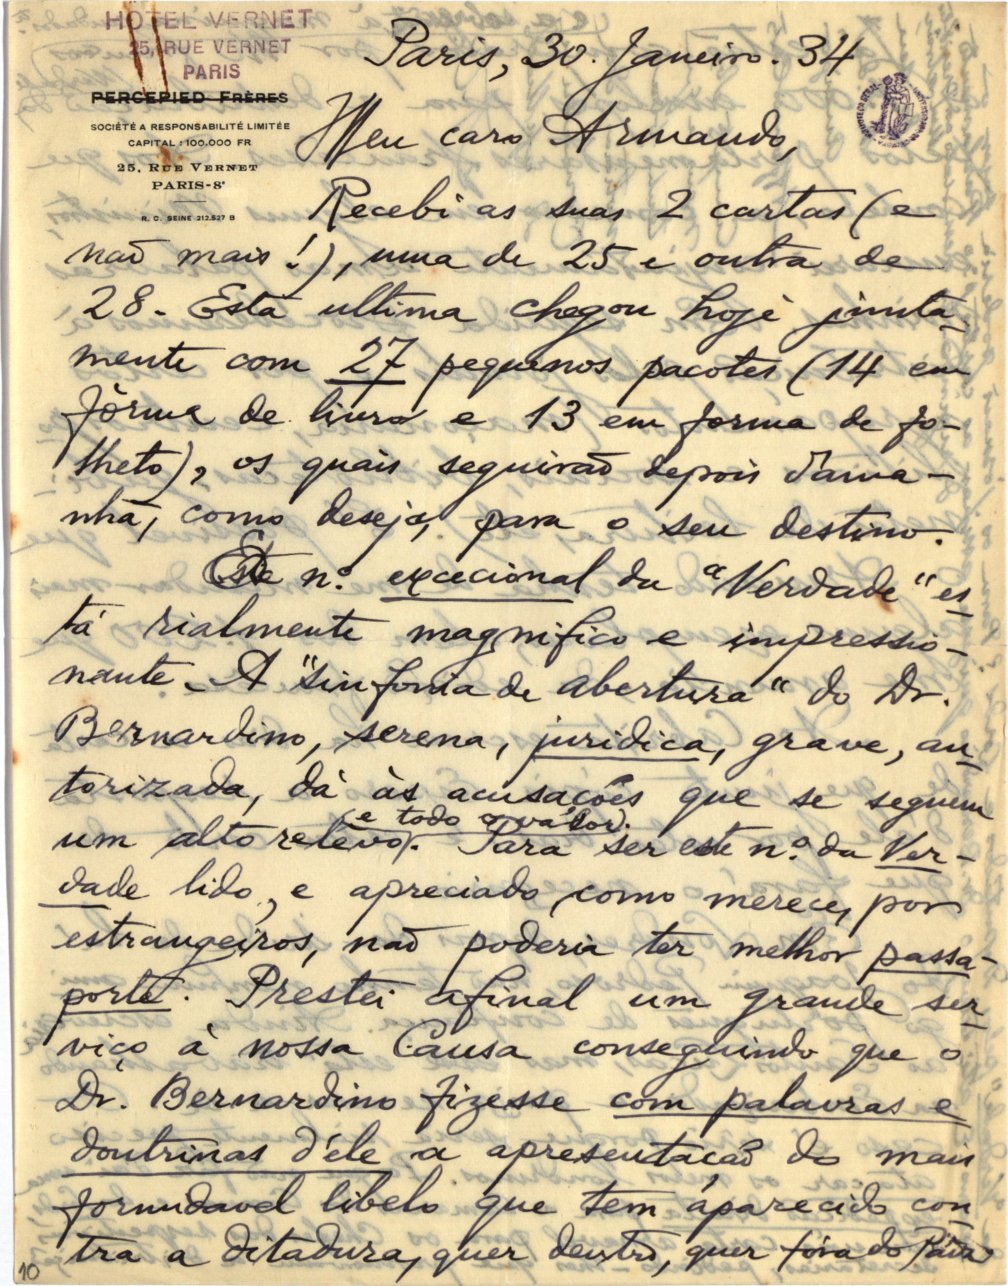 HOTEL VERNET
25, RUE VERNET
PARIS
PERCEPIED FRÈRES
SOCIÉTÉ A RESPONSABILITÉ LIMITÉE
CAPITAL : 100.000 FR
25, RUE VERNET
PARIS-8e
R. C. SEINE 212.527 B
Paris, 30. Janeiro. 34
Meu caro Armando,
Recebi as suas 2 cartas (e
não mais!), uma de 25 e outra de
28. Esta ultima chegou hoje junta-
mente com 27 pequenos pacotes (14 em
fôrma de livro e 13 em forma de fo-
lheto), os quais seguirão depois d'ama-
nhã, como deseja, para o seu destino.
Este nº. excecional da "Verdade" es-
tá rialmente magnifico e impressio-
nante. A "sinfonia de abertura" do Dr.
Bernardino, serena, juridica, grave, au-
torizada, dá às acusações que se seguem
um alto relêvo e todo o valor. Para ser este nº. da Ver-
dade lido, e apreciado como merece, por
estrangeiros, não poderia ter melhor passa-
porte. Prestei afinal um grande ser-
viço à nossa Causa conseguindo que o
Dr. Bernardino fizesse com palavras e
doutrinas d'éle a apresentação do mais
formidavel libelo que tem aparecido con-
tra a ditadura, quer dentro, quer fóra do País.
10